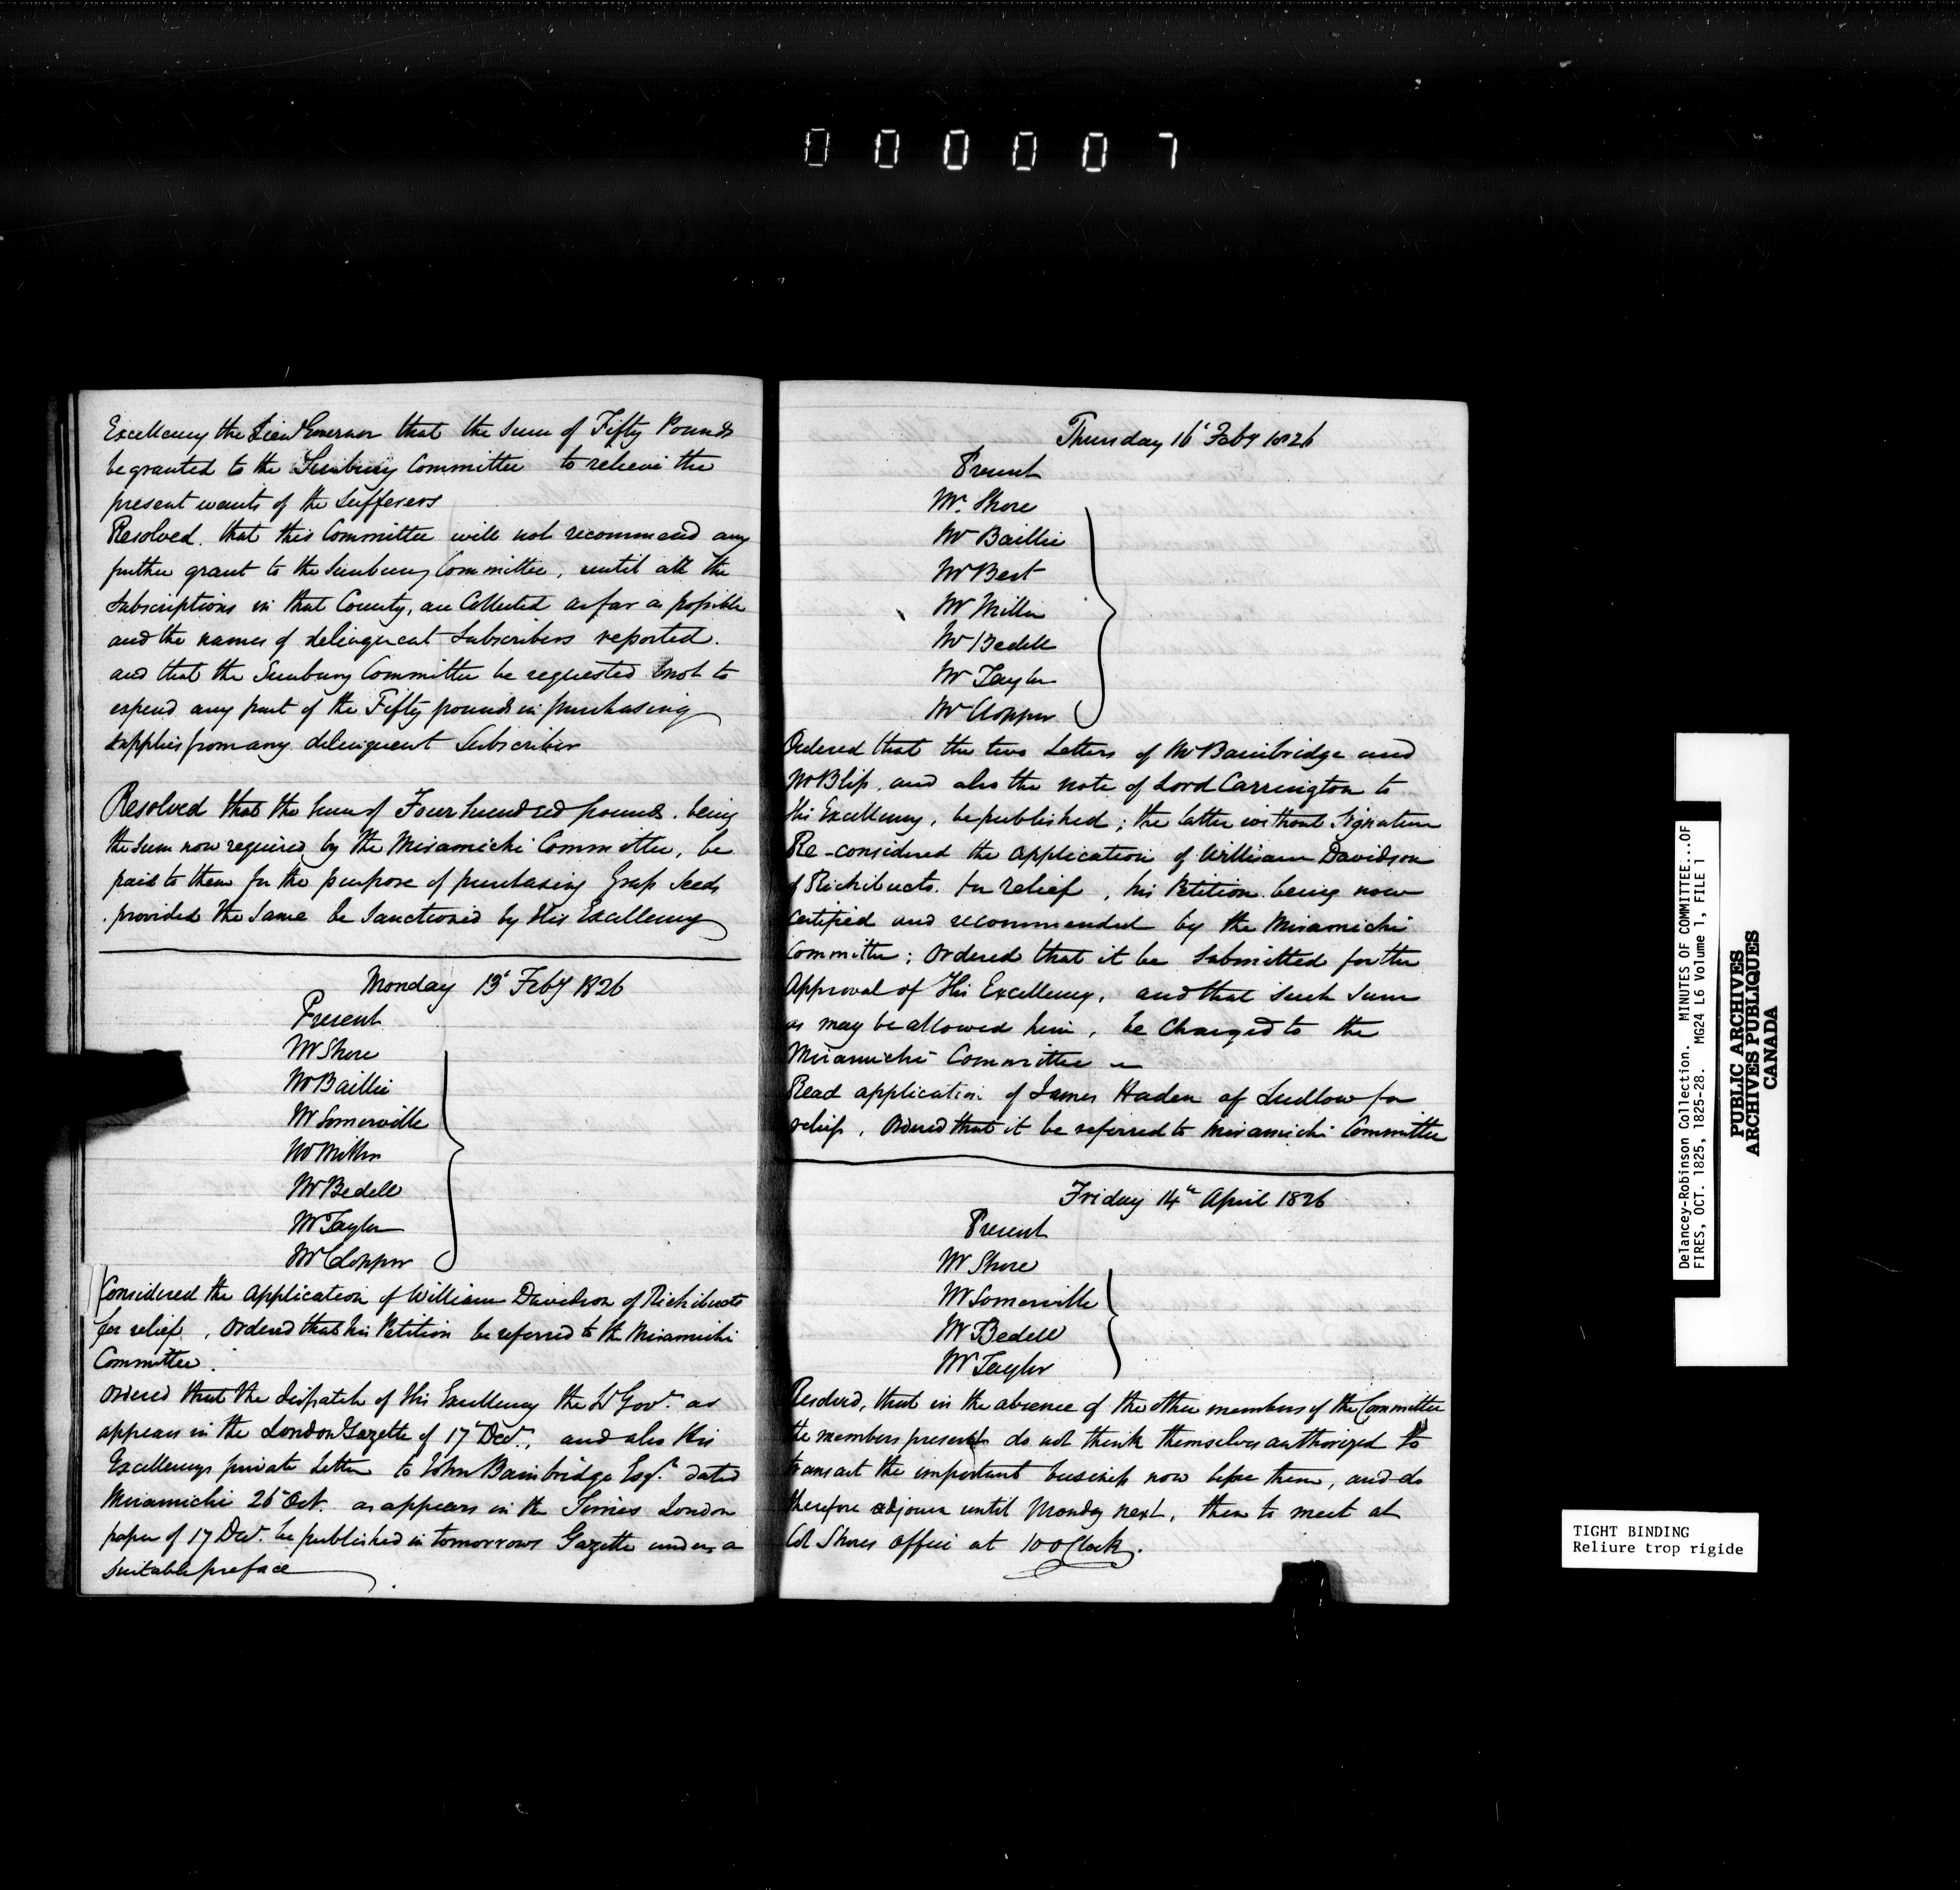 000007
Excellency the Lieut Governor that the Sum of Fifty Pounds
be granted to the Sunbury Committee to relieve the
present wants of the Sufferers
Resolved. that this Committee will not recommend any
further grant to the Sunbury Committee, until all the
Subscriptions in that County, are Collected as far as possible
and the names of delinquent Subscribers reported.
and that the Sunbury Committee be requested not to
expend any part of the Fifty pounds in purchasing
supplies from any delinquent Subscriber
Resolved that the Sum of Four hundred pounds. being
the Sum now required by the Miramichi Committee, be
paid to them for the purpose of purchasing Grass Seeds
provided the Same be Sanctioned by His Excellency
Monday 13th Feby 1826
Present
Mr Shore
Mr Baillie
Mr Somerville
Mr Miller
Mr Bedell
Mr Taylor
Mr Clopper
Considered the Application of William Davidson of Richibucto
for relief, Ordered that his Petition be referred to the Miramichi
Committee.
Ordered that the dispatch of His Excellency the Lt Govr. as
appears in the London Gazette of 17 Decr., and also His
Excellencys private Letter to John Bainbridge Esqr. dated
Miramichi 26 Oct. as appears in the Times London
paper of 17 Decr. be published in tomorrows Gazette under a
Suitable preface
Thursday 16th Feby 1826
Present
Mr. Shore
Mr Baillie
Mr Best
Mr Miller
Mr Bedell
Mr Taylor
Mr Clopper
Ordered that the two Letters of Mr Bainbridge and
Mr Bliss, and also the note of Lord Carrington to
His Excellency, be published; the latter without Signature
Re-considered the application of William Davidson
of Richibucto. for relief, his Petition being now
Certified and recommended by the Miramichi
Committee; Ordered that it be Submitted for the
Approval of His Excellency, and that such Sum
as may be allowed him, be Charged to the
Miramichi Committee
Read application of James Haden of Ludlow for
relief. Ordered that it be referred to Miramichi Committee
Friday 14th April 1826
Present
Mr Shore
Mr Somerville
Mr Bedell
Mr Taylor
Resolved, that in the absence of the other members of the Committee
the members present do not think themselves authorized to
transact the important business now before them, and do
therefore adjourn until Monday next, then to meet at
Col Shores office at 10 oClock.
Delancey-Robinson Collection. MINUTES OF COMMITTEE...OF
FIRES, OCT. 1825, 1825-28. MG24 L6 Volume 1, FILE 1
PUBLIC ARCHIVES
ARCHIVES PUBLIQUES
CANADA
TIGHT BINDING
Reliure trop rigide